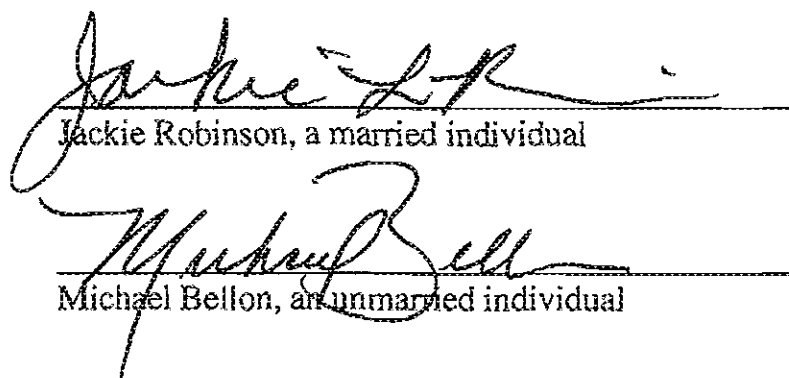 Jackie L R
Jackie Robinson, a married individual
Michael Bellon
Michael Bellon, an unmarried individual